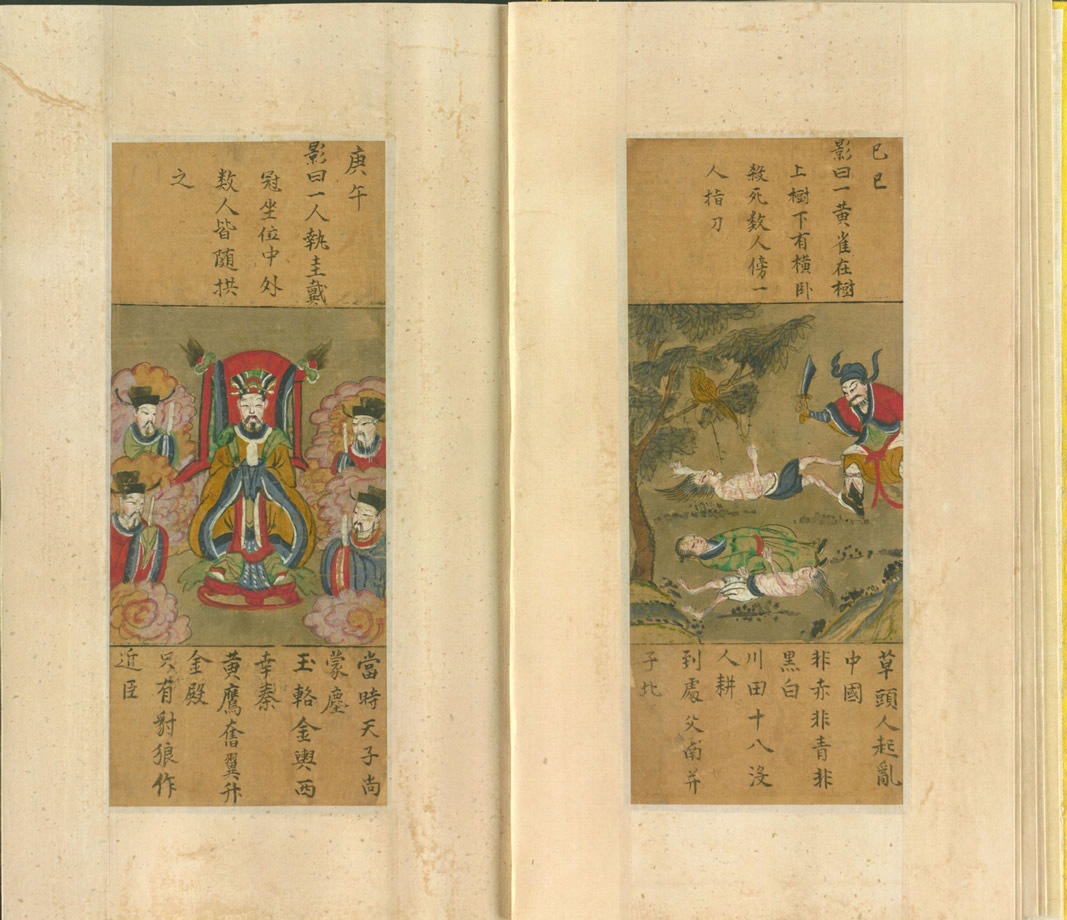 己巳
影曰一黃雀在樹
上樹下有橫卧
殺死数人傍一
人指刀
草頭人起亂
中國
非赤非青非
黑白
川田十八沒
人耕
到處父南并
子北
庚午
影曰一人執圭戴
冠坐位中外
数人皆隨拱
之
當時天子尚
蒙塵
玉輅金輿西
幸秦
黃鷹奮翼升
金殿
只有豺狼作
近臣